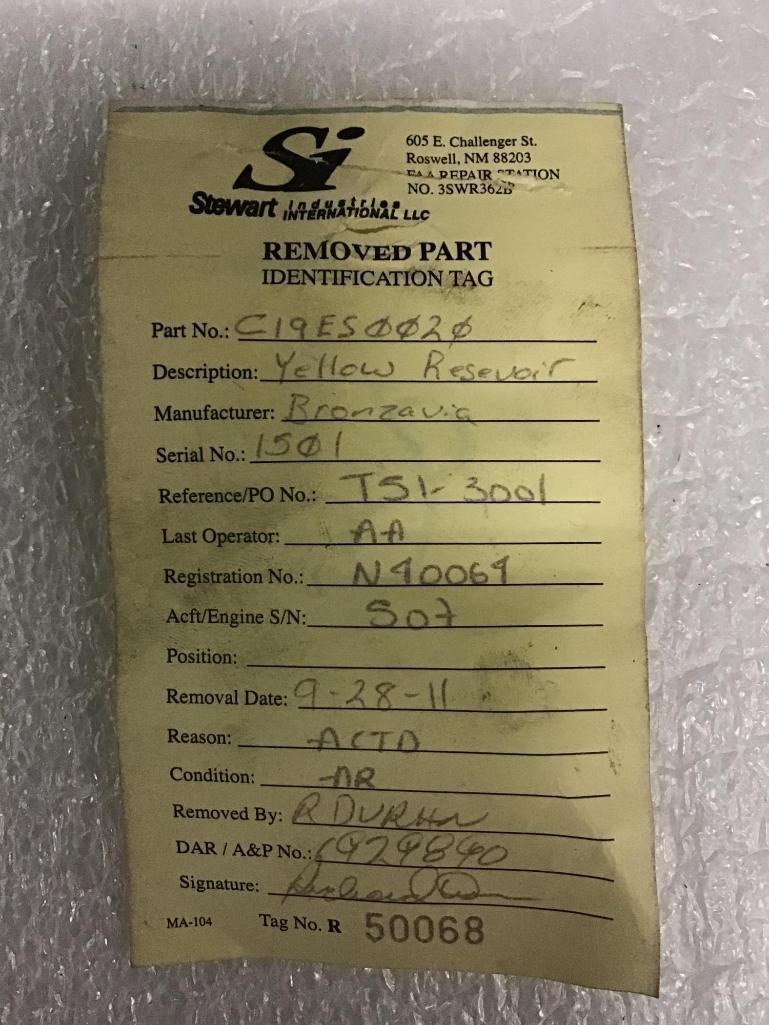 Si
605 E. Challenger St.
Roswell, NM 88203
FAA REPAIR STATION
NO. 3SWR362B
Stewart Industries
INTERNATIONAL LLC
REMOVED PART
IDENTIFICATION TAG
Part No.: C19ES0020
Description: Yellow Resevoir
Manufacturer: Bronzavia
Serial No.: 1501
Reference/PO No.: TS1-3001
Last Operator: AA
Registration No.: N90064
Acft/Engine S/N: 507
Position:
Removal Date: 9-28-11
Reason: ACTD
Condition: AR
Removed By: R DURHN
DAR / A&P No.:
Signature:
MA-104 Tag No. R 50068